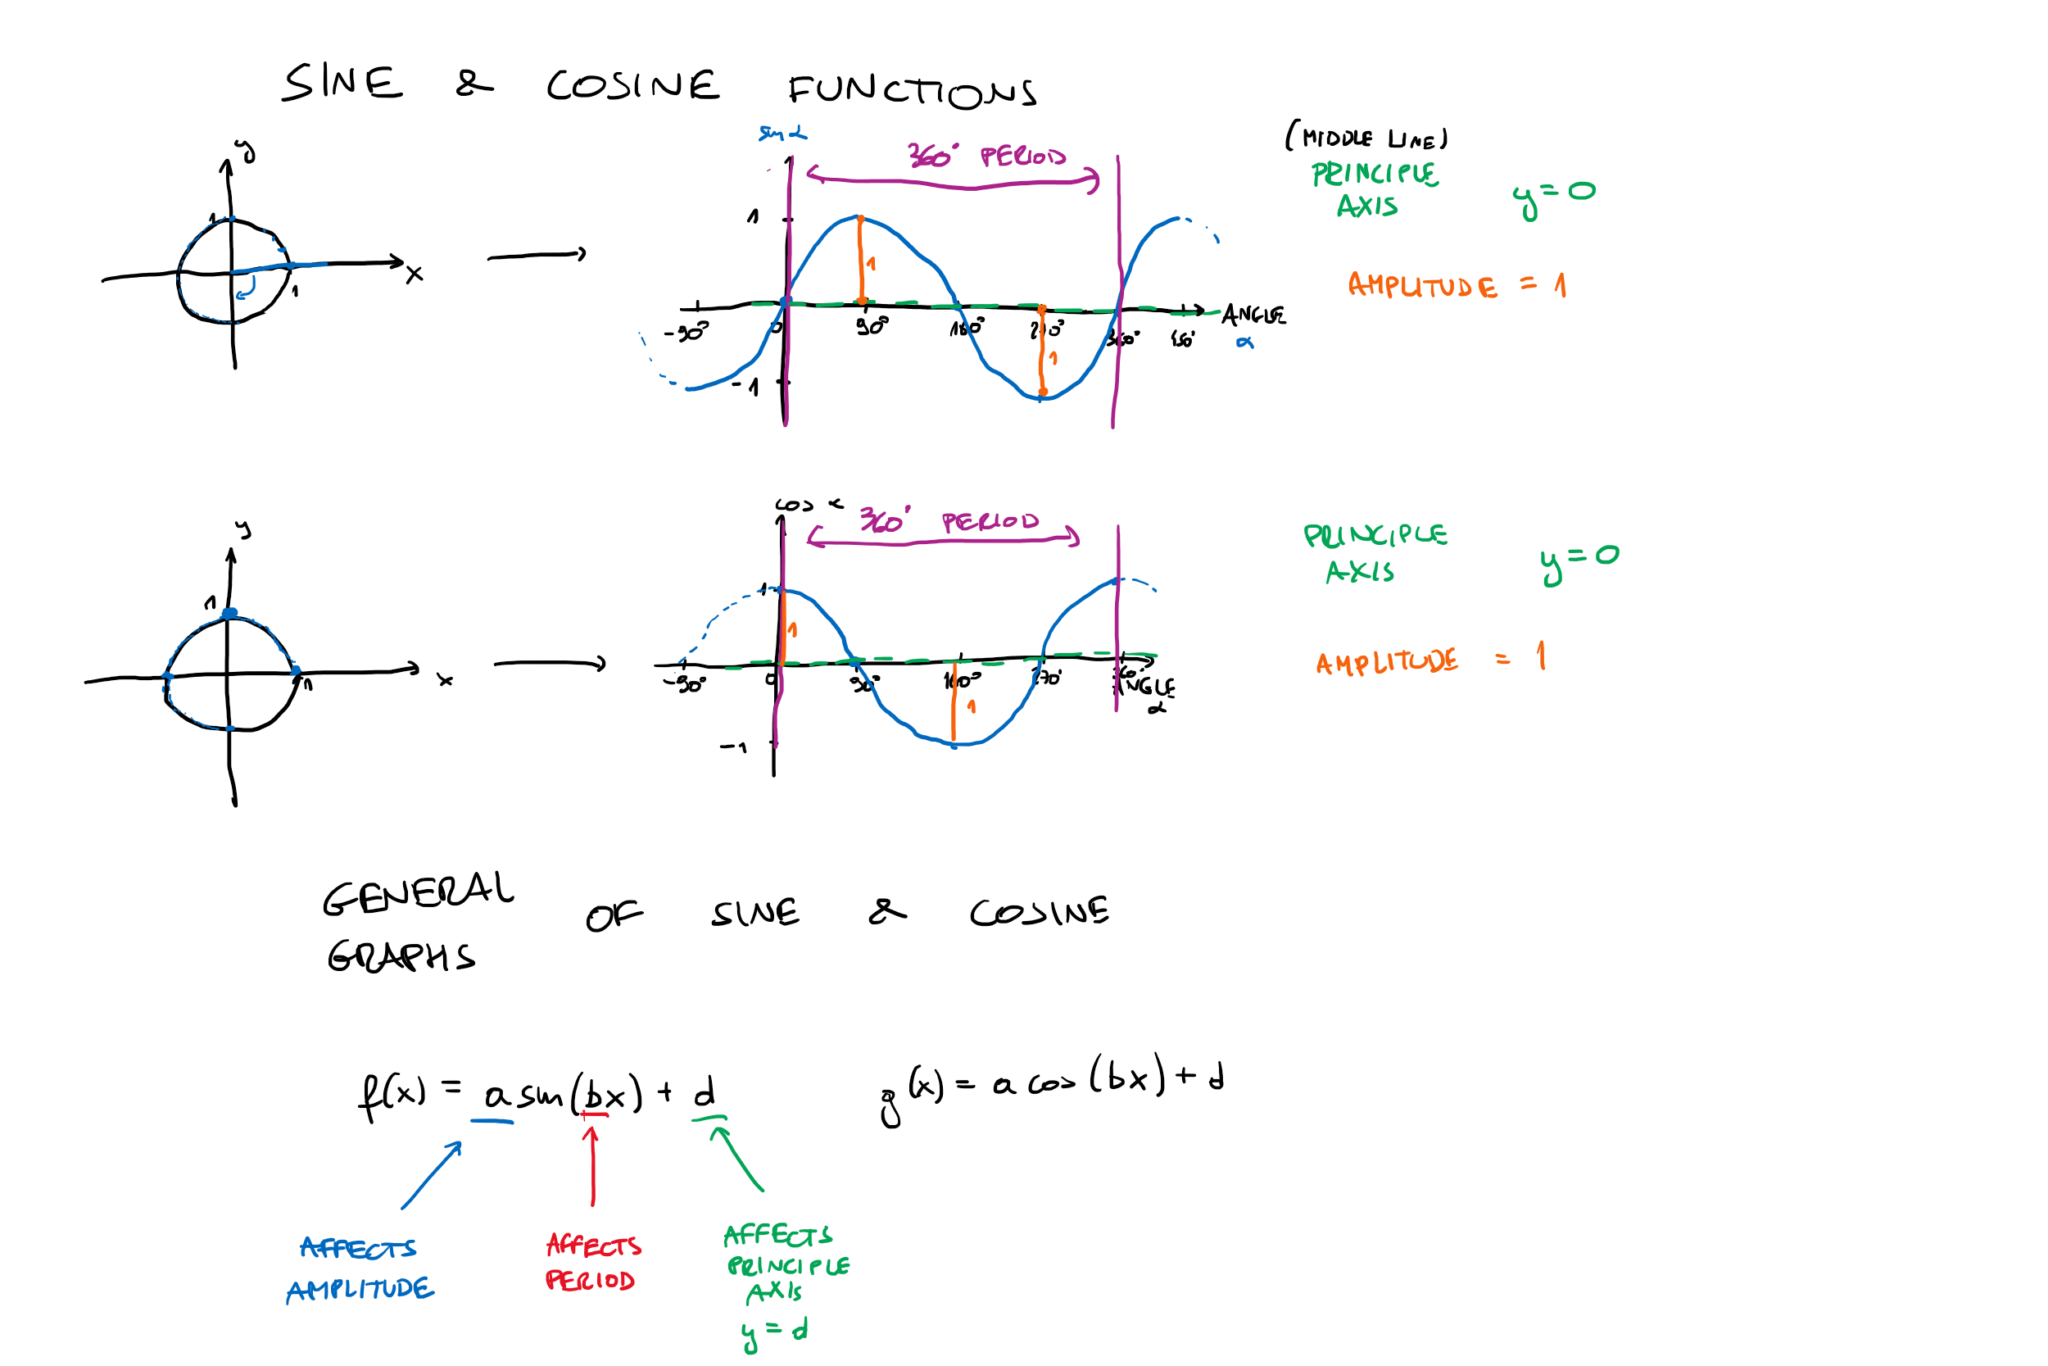 SINE & COSINE FUNCTIONS
y
1
1
x
sin α
360° PERIOD
1
1
1
-1
-90° 0 90° 180° 270° 360° 450°
ANGLE
α
(MIDDLE LINE)
PRINCIPLE
AXIS
y=0
AMPLITUDE = 1
y
1
1
x
cos α
360° PERIOD
1
1
1
-1
-90° 0 90° 180° 270° 360°
ANGLE
α
PRINCIPLE
AXIS
y=0
AMPLITUDE = 1
GENERAL
GRAPHS
OF SINE & COSINE
f(x) = a sin(bx) + d
g(x) = a cos(bx) + d
AFFECTS
AMPLITUDE
AFFECTS
PERIOD
AFFECTS
PRINCIPLE
AXIS
y = d